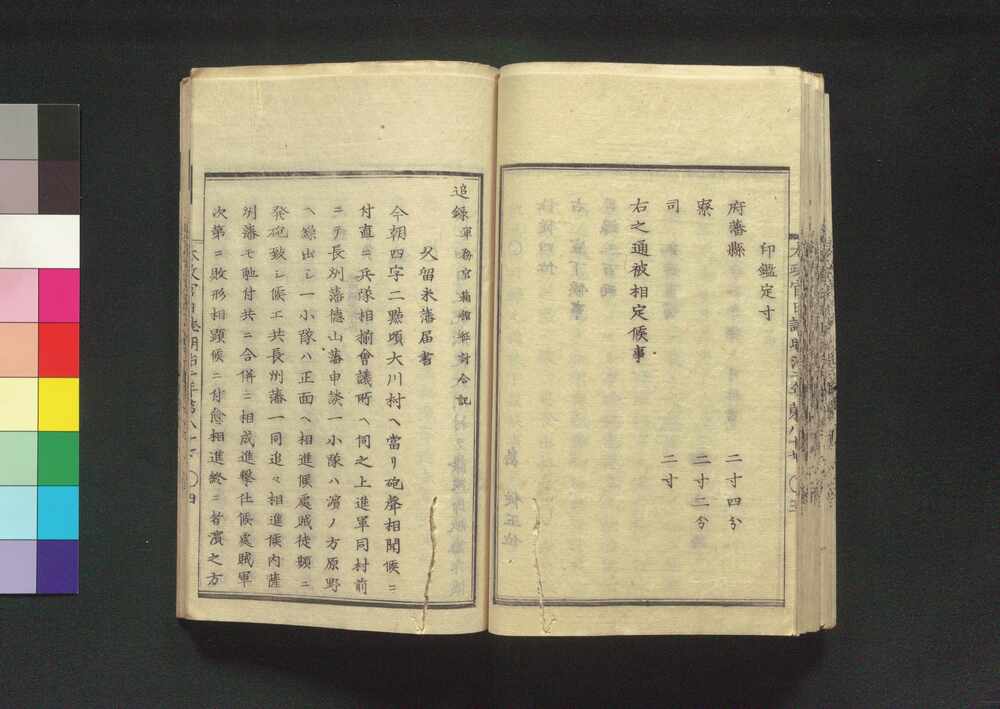 印鑑定寸
府藩縣 二寸四分
寮 二寸二分
司 二寸
右之通被相定候事
追錄 軍務官
久留米藩届書
今朝四字二點頃大川村ヘ當リ砲聲相聞候ニ
付直ニ兵隊相揃會議所ヘ伺之上進軍同村前
ニテ長州藩德山藩申談一小隊ハ濵ノ方原野
ヘ繰出シ一小隊ハ正面ヘ相進候處賊徒頻ニ
発砲致シ候エ共長州藩一同追々相進候内薩
州藩モ馳付共ニ合併ニ相成進擊仕候處賊軍
次第ニ敗形相顕候ニ付愈相進終ニ者濵之方